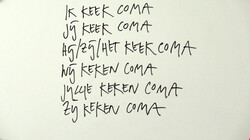 IK KEEK COMA
JIJ KEEK COMA
HIJ/ZIJ/HET KEEK COMA
WIJ KEKEN COMA
JULLIE KEKEN COMA
ZIJ KEKEN COMA